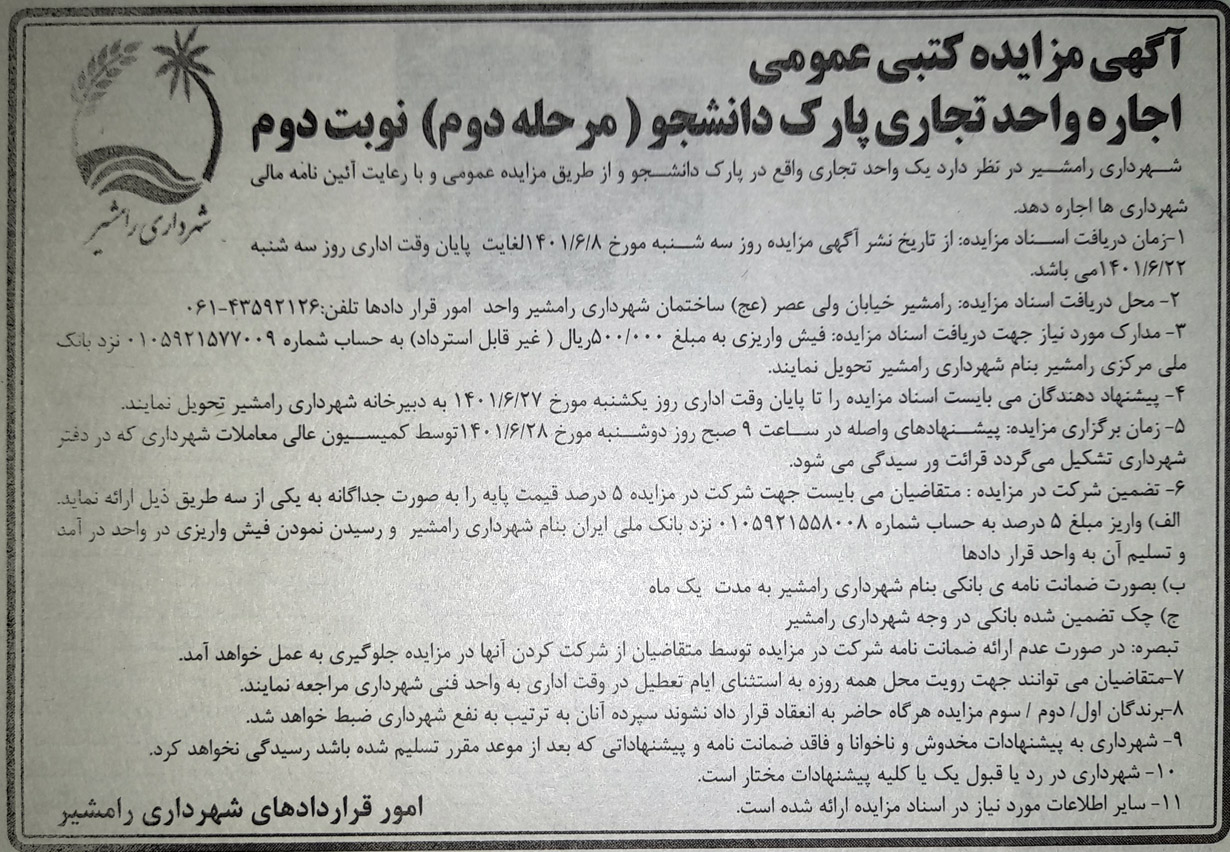 آگهی مزایده کتبی عمومی
اجاره واحد تجاری پارک دانشجو ( مرحله دوم) نوبت دوم
شهرداری رامشیر
شهرداری رامشیر در نظر دارد یک واحد تجاری واقع در پارک دانشجو و از طریق مزایده عمومی و با رعایت آئین نامه مالی
شهرداری ها اجاره دهد.
۱-زمان دریافت اسناد مزایده: از تاریخ نشر آگهی مزایده روز سه شنبه مورخ ۱۴۰۱/۶/۸لغایت پایان وقت اداری روز سه شنبه
۱۴۰۱/۶/۲۲می باشد.
۲- محل دریافت اسناد مزایده: رامشیر خیابان ولی عصر (عج) ساختمان شهرداری رامشیر واحد امور قرار دادها تلفن:۴۳۵۹۲۱۲۶-۰۶۱
۳- مدارک مورد نیاز جهت دریافت اسناد مزایده: فیش واریزی به مبلغ ۵۰۰/۰۰۰ریال ( غیر قابل استرداد) به حساب شماره ۰۱۰۵۹۲۱۵۷۷۰۰۹ نزد بانک
ملی مرکزی رامشیر بنام شهرداری رامشیر تحویل نمایند.
۴- پیشنهاد دهندگان می بایست اسناد مزایده را تا پایان وقت اداری روز یکشنبه مورخ ۱۴۰۱/۶/۲۷ به دبیرخانه شهرداری رامشیر تحویل نمایند.
۵- زمان برگزاری مزایده: پیشنهادهای واصله در ساعت ۹ صبح روز دوشنبه مورخ ۱۴۰۱/۶/۲۸توسط کمیسیون عالی معاملات شهرداری که در دفتر
شهرداری تشکیل می‌گردد قرائت ور سیدگی می شود.
۶- تضمین شرکت در مزایده : متقاضیان می بایست جهت شرکت در مزایده ۵ درصد قیمت پایه را به صورت جداگانه به یکی از سه طریق ذیل ارائه نماید.
الف) واریز مبلغ ۵ درصد به حساب شماره ۰۱۰۵۹۲۱۵۵۸۰۰۸ نزد بانک ملی ایران بنام شهرداری رامشیر و رسیدن نمودن فیش واریزی در واحد در آمد
و تسلیم آن به واحد قرار دادها
ب) بصورت ضمانت نامه ی بانکی بنام شهرداری رامشیر به مدت یک ماه
ج) چک تضمین شده بانکی در وجه شهرداری رامشیر
تبصره: در صورت عدم ارائه ضمانت نامه شرکت در مزایده توسط متقاضیان از شرکت کردن آنها در مزایده جلوگیری به عمل خواهد آمد.
۷-متقاضیان می توانند جهت رویت محل همه روزه به استثنای ایام تعطیل در وقت اداری به واحد فنی شهرداری مراجعه نمایند.
۸-برندگان اول/ دوم / سوم مزایده هرگاه حاضر به انعقاد قرار داد نشوند سپرده آنان به ترتیب به نفع شهرداری ضبط خواهد شد.
۹- شهرداری به پیشنهادات مخدوش و ناخوانا و فاقد ضمانت نامه و پیشنهاداتی که بعد از موعد مقرر تسلیم شده باشد رسیدگی نخواهد کرد.
۱۰- شهرداری در رد یا قبول یک یا کلیه پیشنهادات مختار است.
۱۱- سایر اطلاعات مورد نیاز در اسناد مزایده ارائه شده است.
امور قراردادهای شهرداری رامشیر